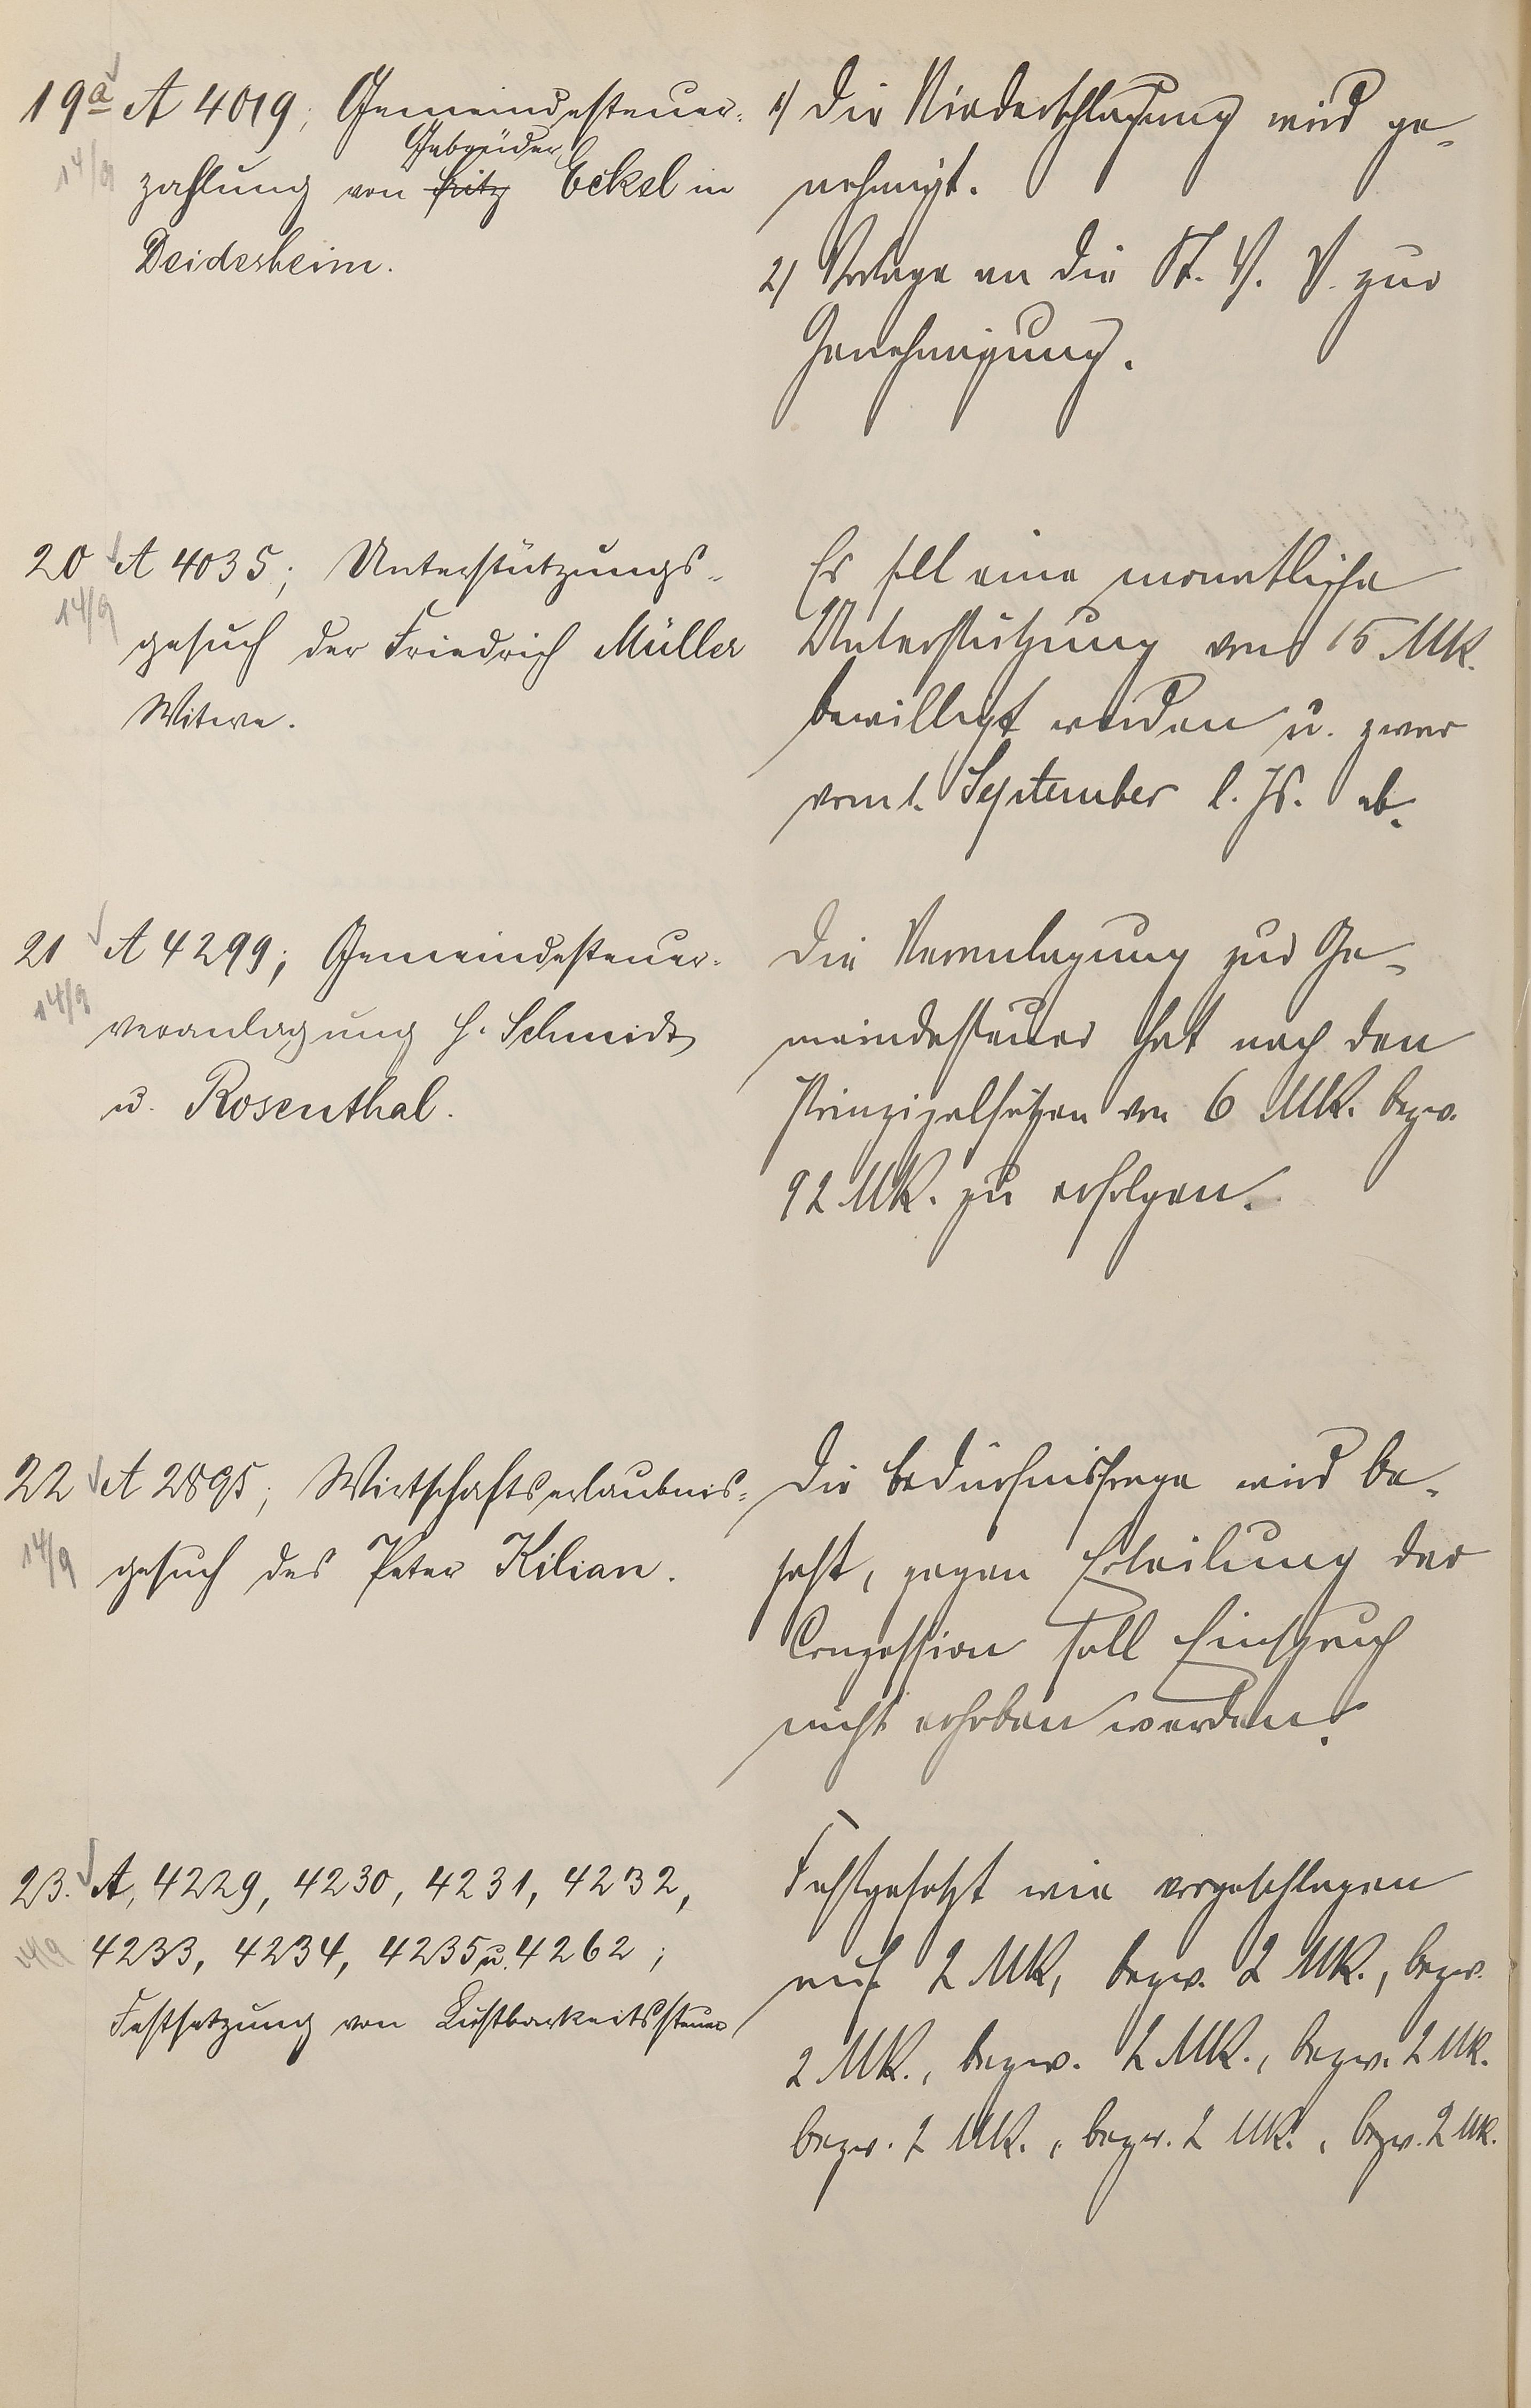 19a A 4019; Gemeindesteuer-
14/9
Gebrüder
zahlung von Fritz Eckel in
Deidesheim.
1) Die Niederschlagung wird ge-
nehmigt.
2) Vorlage an die St. V. V. zur
Genehmigung.
20 A 4035; Unterstützungs-
14/9
gesuch der Friedrich Müller
Witwe.
Es soll eine monatliche
Unterstützung von 15 Mk.
bewilligt werden u. zwar
vom 1. September l. Js. ab.
21 A 4299; Gemeindesteuer-
14/9
veranlagung H. Schmidt
u. Rosenthal.
Die Veranlagung zur Ge-
meindesteuer hat nach den
Prinzipalsätzen von 6 Mk. bezw.
92 Mk. zu erfolgen.
22 A 2895; Wirtschaftserlaubnis-
14/9
gesuch des Peter Kilian.
Die Bedürfnisfrage wird be-
jaht, gegen Erteilung der
Conzession soll Einspruch
nicht erhoben werden.
23. A, 4229, 4230, 4231, 4232,
14/9
4233, 4234, 4235 u. 4262;
Festsetzung von Lustbarkeitssteuer
Festgesetzt wie vorgeschlagen
auf 2 Mk, bezw. 2 Mk., bezw.
2 Mk., bezw. 2 Mk., bezw. 2 Mk.
bezw. 2 Mk., bezw. 2 Mk., bezw. 2 Mk.